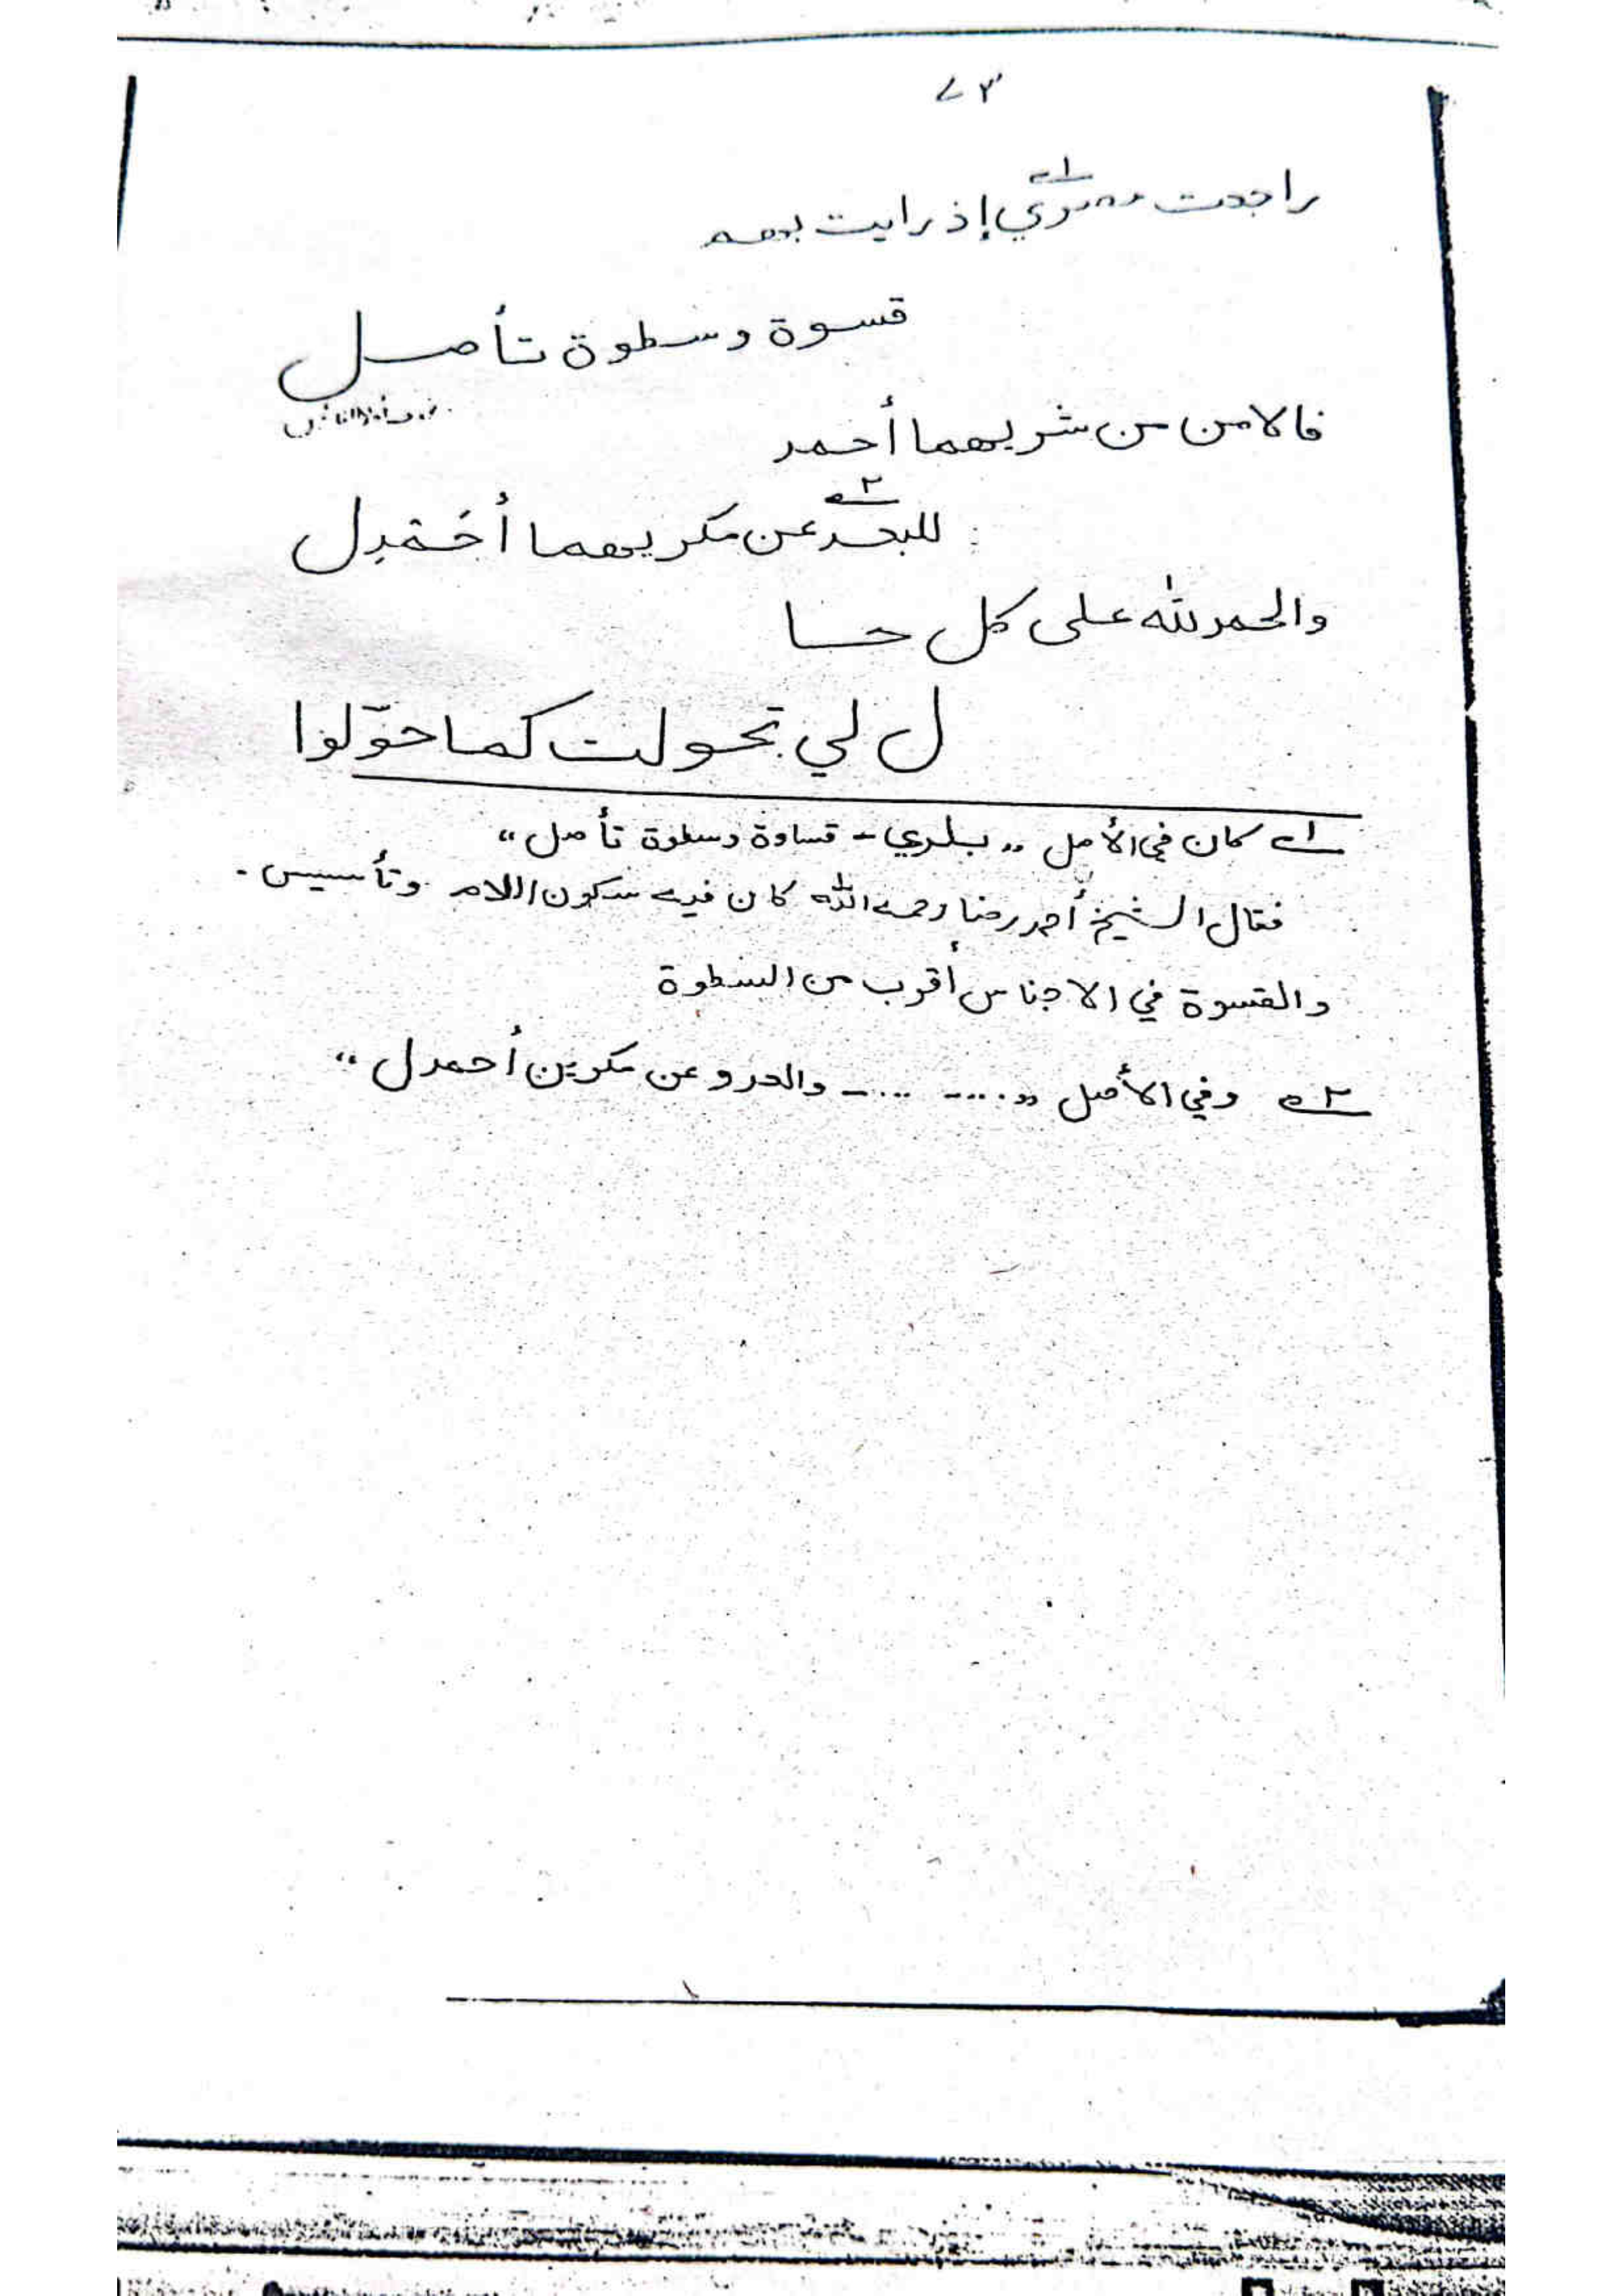 ٧٣
راجعت إذ رايت بهم
قسوة وسطوة تأصل
فالامن من شريهما أحمد
للبعد عن مكريهما أختمل
والحمد لله على كل حا
ل لي تحولت كما حوّلوا
١ كان في الأصل ,, بلري - قساوة وسطوة تأصل ،،
فقال الشيخ أحمد رضا رحمه الله كان فيه سكون اللام وتأسيس .
والقسوة في الاجناس أقرب من السطوة
٢ وفي الأصل ,, .... ... - والعدو عن مكرين أحمدل ،،